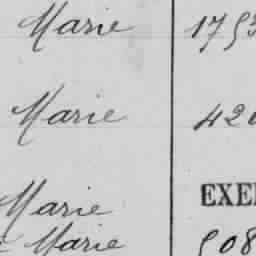 Marie 1793
Marie 420
Marie EXE
Marie 508